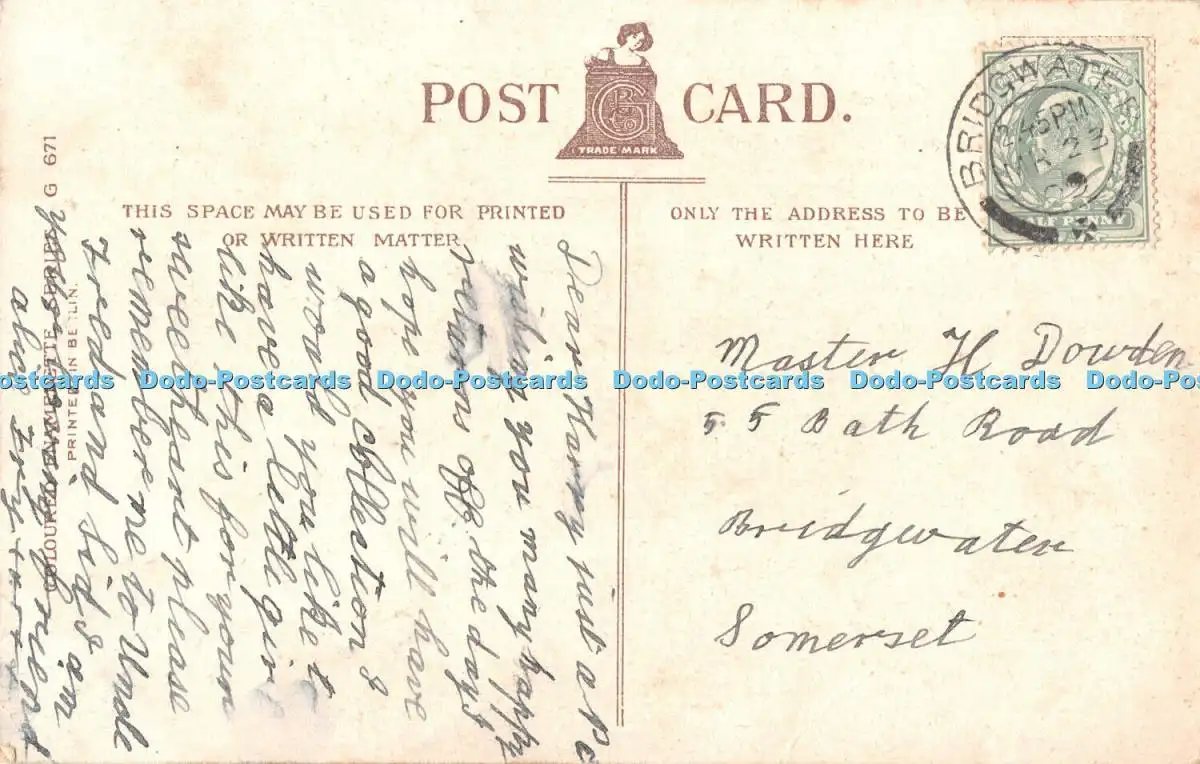 POST CARD.
TRADE MARK
THIS SPACE MAY BE USED FOR PRINTED
OR WRITTEN MATTER
ONLY THE ADDRESS TO BE
WRITTEN HERE
BRIDGWATER
45PM
HALF PENNY
Dear Harry just a Pc
wishing you many happy
returns off the day I
hope you will have
a good collection &
would you like to
have a little girl
like this for your
sweetheart please
remember me to Uncle
Fred and kids am
Your loving friend
Master H Dowden
55 Bath Road
Bridgwater
Somerset
COLOURED VIGNETTE SERIES G 671
PRINTED IN BERLIN.
Dodo-Postcards Dodo-Postcards Dodo-Postcards Dodo-Postcards Dodo-Postcards Dodo-Postcards